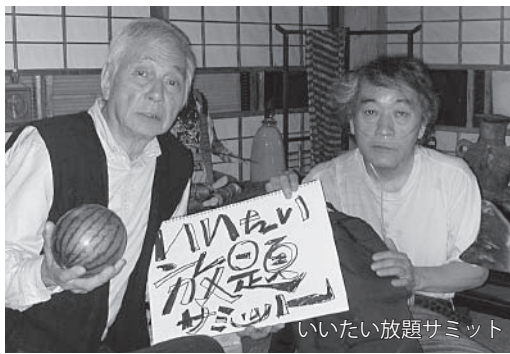 いいたい
放題
サミットー
いいたい放題サミット